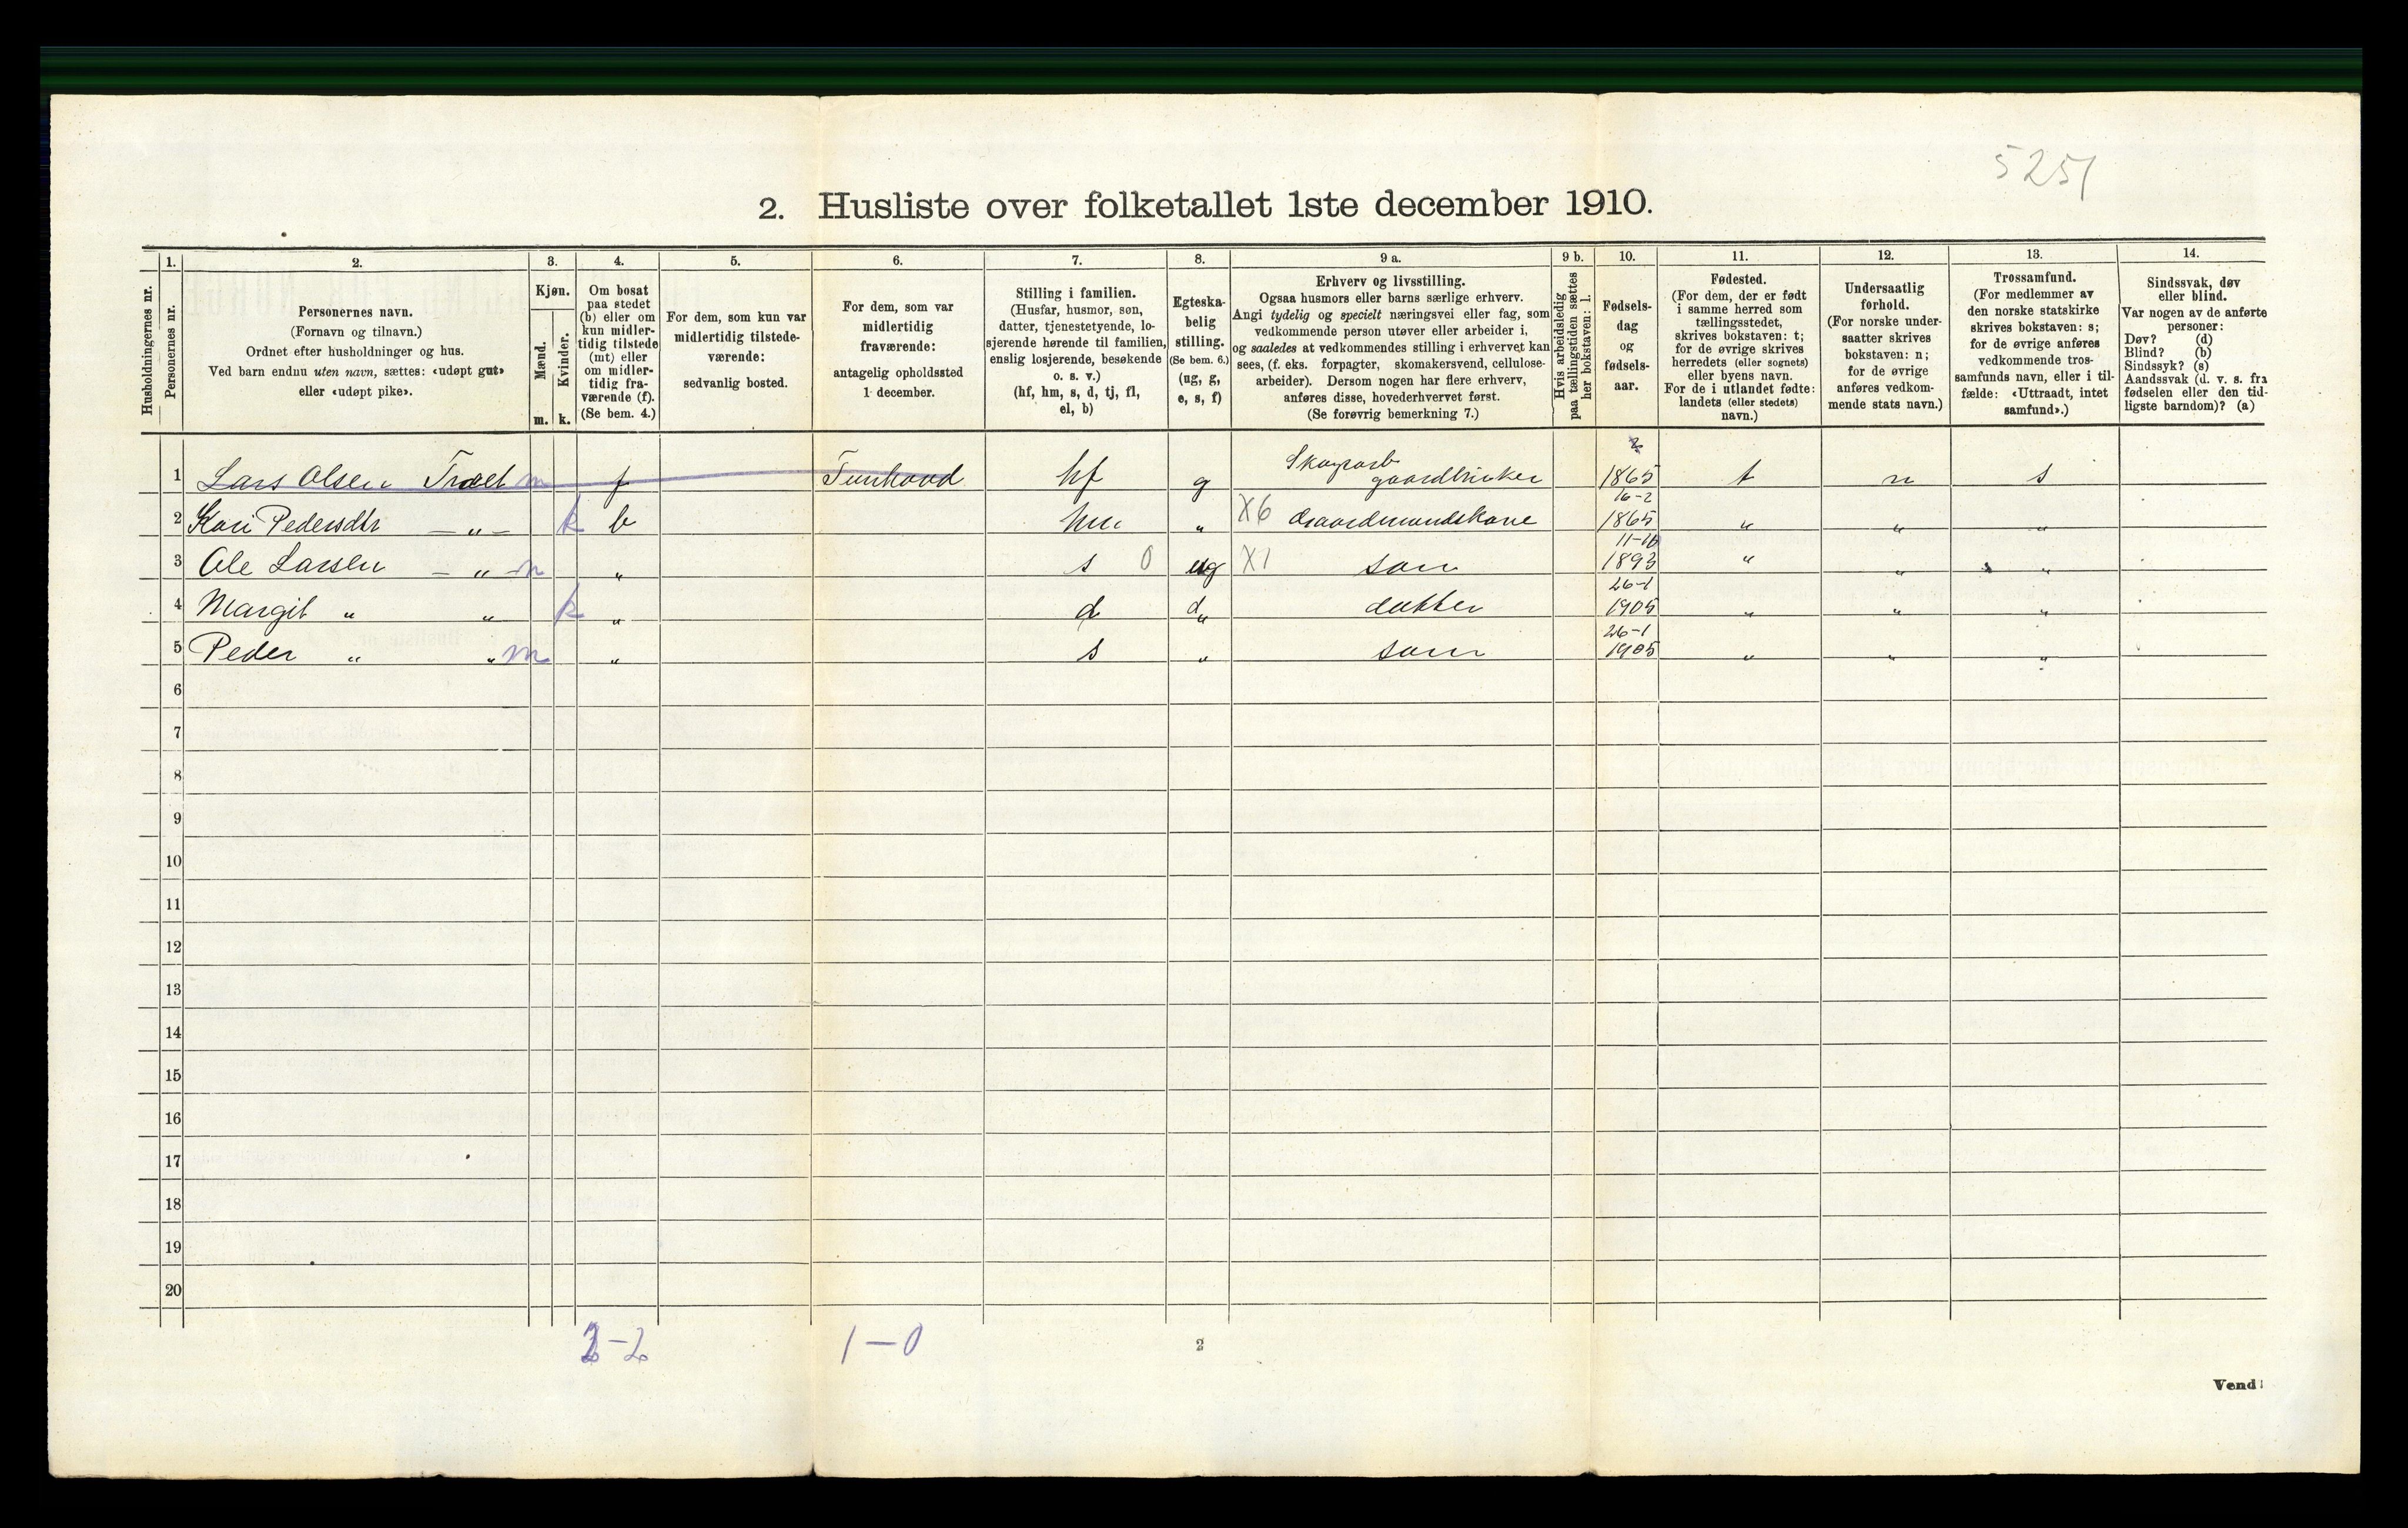 5251
2. Husliste over folketallet 1ste december 1910.
Husholdningernes nr.
1.
Personernes nr.
2.
Personernes navn.
(Fornavn og tilnavn.)
Ordnet efter husholdninger og hus.
Ved barn endnu uten navn, sættes: «udøpt gut»
eller «udøpt pike».
3.
Kjøn.
Mænd.
Kvinder.
m. k.
4.
Om bosat
paa stedet
(b) eller om
kun midler-
tidig tilstede
(mt) eller
om midler-
tidig fra-
værende (f).
(Se bem. 4.)
5.
For dem, som kun var
midlertidig tilstede-
værende:
sedvanlig bosted.
6.
For dem, som var
midlertidig
fraværende:
antagelig opholdssted
1 december.
7.
Stilling i familien.
(Husfar, husmor, søn,
datter, tjenestetyende, lo-
sjerende hørende til familien,
enslig losjerende, besøkende
o. s. v.)
(hf, hm, s, d, tj, fl,
el, b)
8.
Egteska-
belig
stilling.
(Se bem. 6.)
(ug, g,
e, s, f)
9 a.
Erhverv og livsstilling.
Ogsaa husmors eller barns særlige erhverv.
Angi tydelig og specielt næringsvei eller fag, som
vedkommende person utøver eller arbeider i,
og saaledes at vedkommendes stilling i erhvervet kan
sees, (f. eks. forpagter, skomakersvend, cellulose-
arbeider). Dersom nogen har flere erhverv,
anføres disse, hovederhvervet først.
(Se forøvrig bemerkning 7.)
9 b.
Hvis arbeidsledig
paa tællingstiden sættes
her bokstaven: l.
10.
Fødsels-
dag
og
fødsels-
aar.
11.
Fødested.
(For dem, der er født
i samme herred som
tællingsstedet,
skrives bokstaven: t;
for de øvrige skrives
herredets (eller sognets)
eller byens navn.
For de i utlandet fødte:
landets (eller stedets)
navn.)
12.
Undersaatlig
forhold.
(For norske under-
saatter skrives
bokstaven: n;
for de øvrige
anføres vedkom-
mende stats navn.)
13.
Trossamfund.
(For medlemmer av
den norske statskirke
skrives bokstaven: s;
for de øvrige anføres
vedkommende tros-
samfunds navn, eller i til-
fælde: «Uttraadt, intet
samfund».)
14.
Sindssvak, døv
eller blind.
Var nogen av de anførte
personer:
Døv? (d)
Blind? (b)
Sindssyk? (s)
Aandssvak (d. v. s. fra
fødselen eller den tid-
ligste barndom)? (a)
1 Lars Olsen Træet m f Tunhovd hf g gaardbruker 1865 t n s
2 Kari Pedersdtr — „ — k b hm „ X6 Gaardmandskone 16-2 1865 „ „ „
3 Ole Larsen — „ — m „ s 0 ug X1 søn 11-10 1893 „ „ „
4 Margit „ „ k „ d „ datter 26-1 1905 „ „ „
5 Peder „ „ m „ s „ søn 26-1 1905 „ „ „
6
7
8
9
10
11
12
13
14
15
16
17
18
19
20
2-2 1-0
2
Vend!